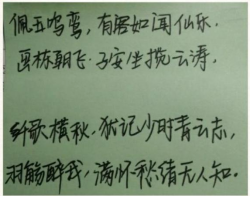 佩玉鸣鸾，有客如闻仙乐。
画栋朝飞，子安坐揽云涛，
歌横秋，犹记少时青云志，
羽觞醉我，满怀愁绪无人知。